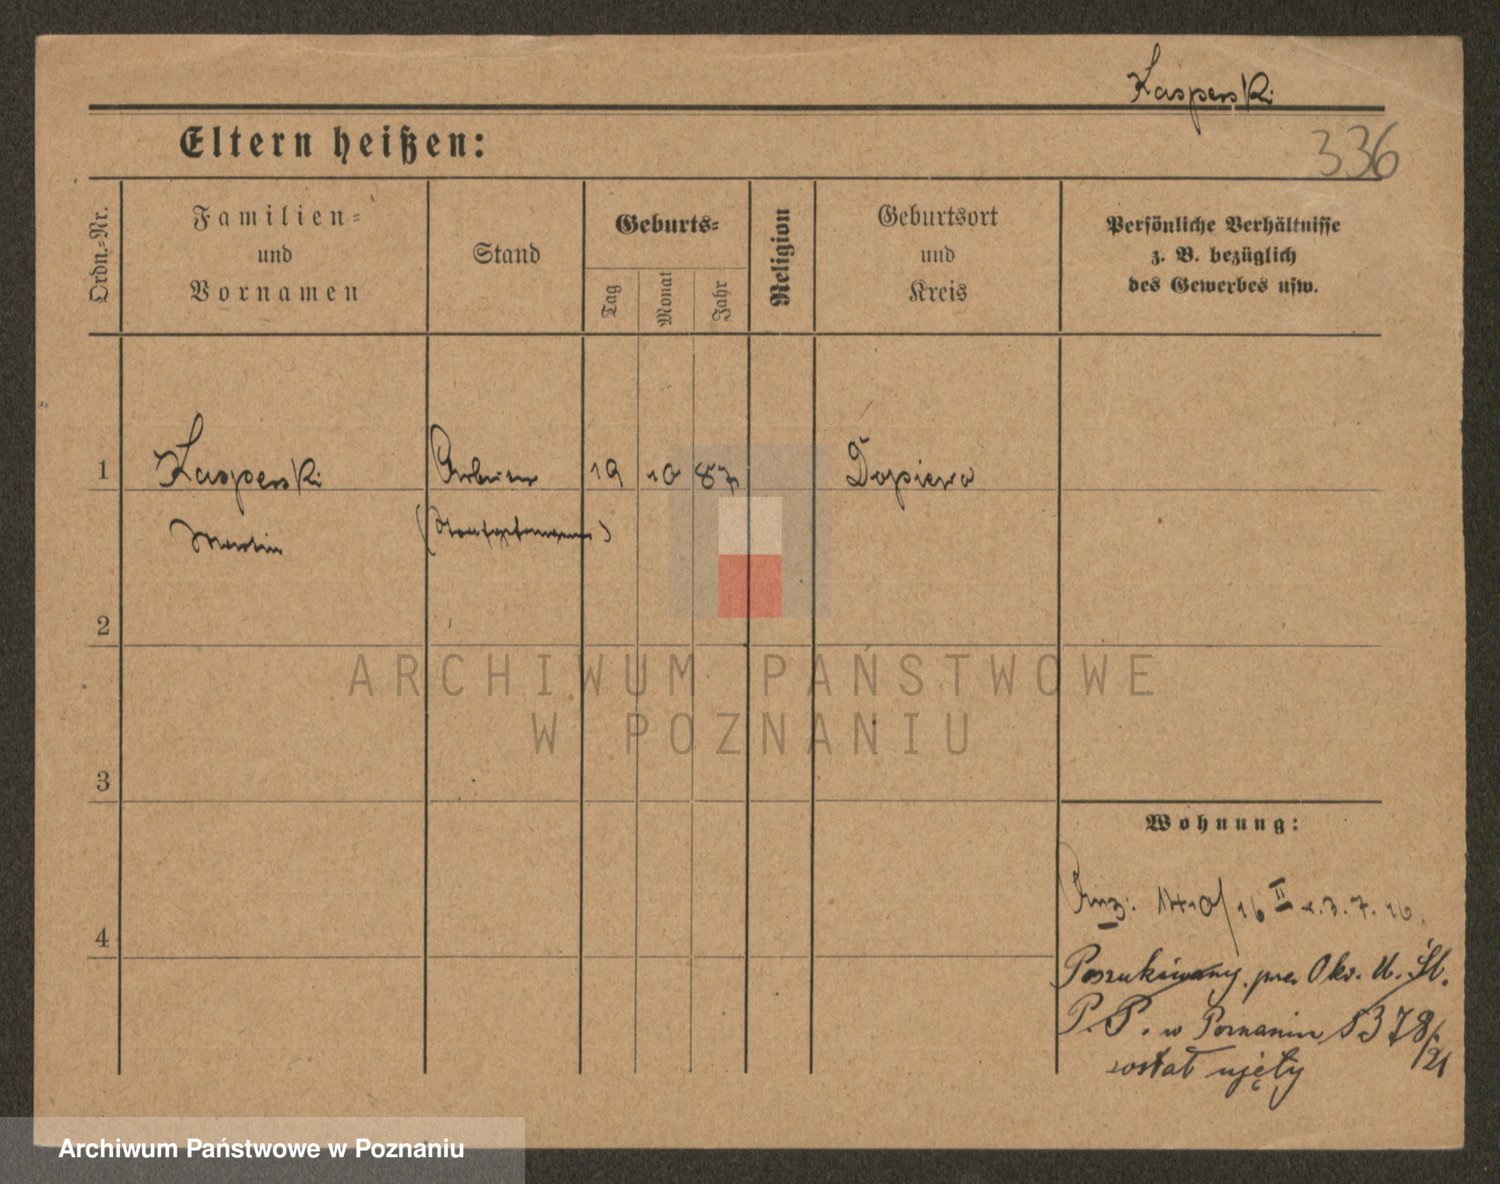 Kasperski
336
Eltern heißen:
Ordn.-Nr.
Familien-
und
Vornamen
Stand
Geburts-
Tag
Monat
Jahr
Religion
Geburtsort
und
Kreis
Persönliche Verhältnisse
z. B. bezüglich
des Gewerbes usw.
1 Kasperski Arbeiter 19 10 87 Dopiewo
Martin
2
3
4
Wohnung:
3. 7. 16.
Poszukiwany przez Okr. U. Śl.
P. P. w Poznaniu 378/21
został ujęty
ARCHIWUM PAŃSTWOWE
W POZNANIU
Archiwum Państwowe w Poznaniu